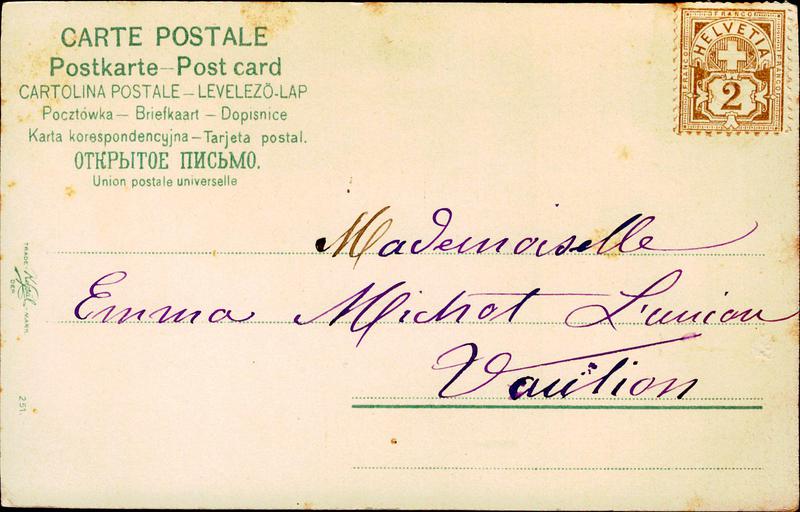 CARTE POSTALE
Postkarte – Post card
CARTOLINA POSTALE – LEVELEZÖ-LAP
Pocztówka – Briefkaart – Dopisnice
Karta korespondencyjna – Tarjeta postal.
ОТКРЫТОЕ ПИСЬМО.
Union postale universelle
FRANCO
FRANCO
FRANCO
HELVETIA
2
Mademoiselle
Emma Michot L'union
Vaulion
TRADE MARK
251.